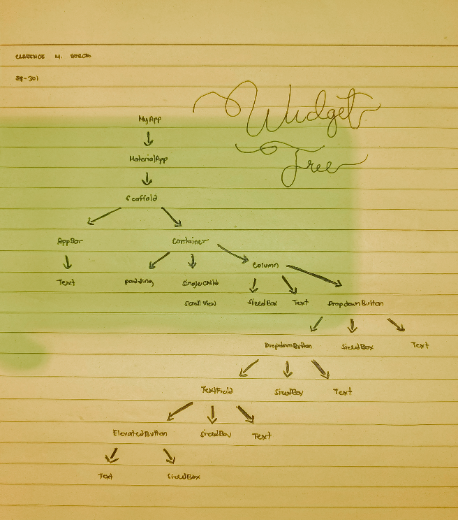 CLARENCE M.
Widget
Tree
MyApp
MaterialApp
Scaffold
AppBar Container
Column
Text padding SingleChild
Scroll View SizedBox Text DropdownButton
DropdownButton SizedBox Text
TextField SizedBox Text
ElevatedButton SizedBox Text
Text SizedBox